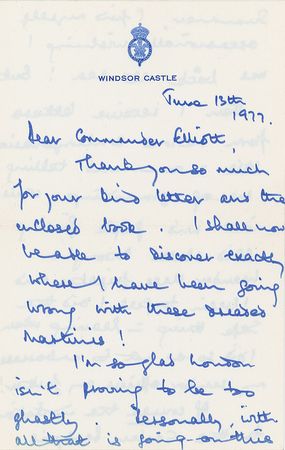 WINDSOR CASTLE
June 13th
1977.
Dear Commander Elliott,
Thank you so much
for your kind letter and the
enclosed book. I shall now
be able to discover exactly
where I have been going
wrong with these dreaded
martinis!
I'm so glad London
isn't proving to be too
ghastly. Personally, with
all that is going on this